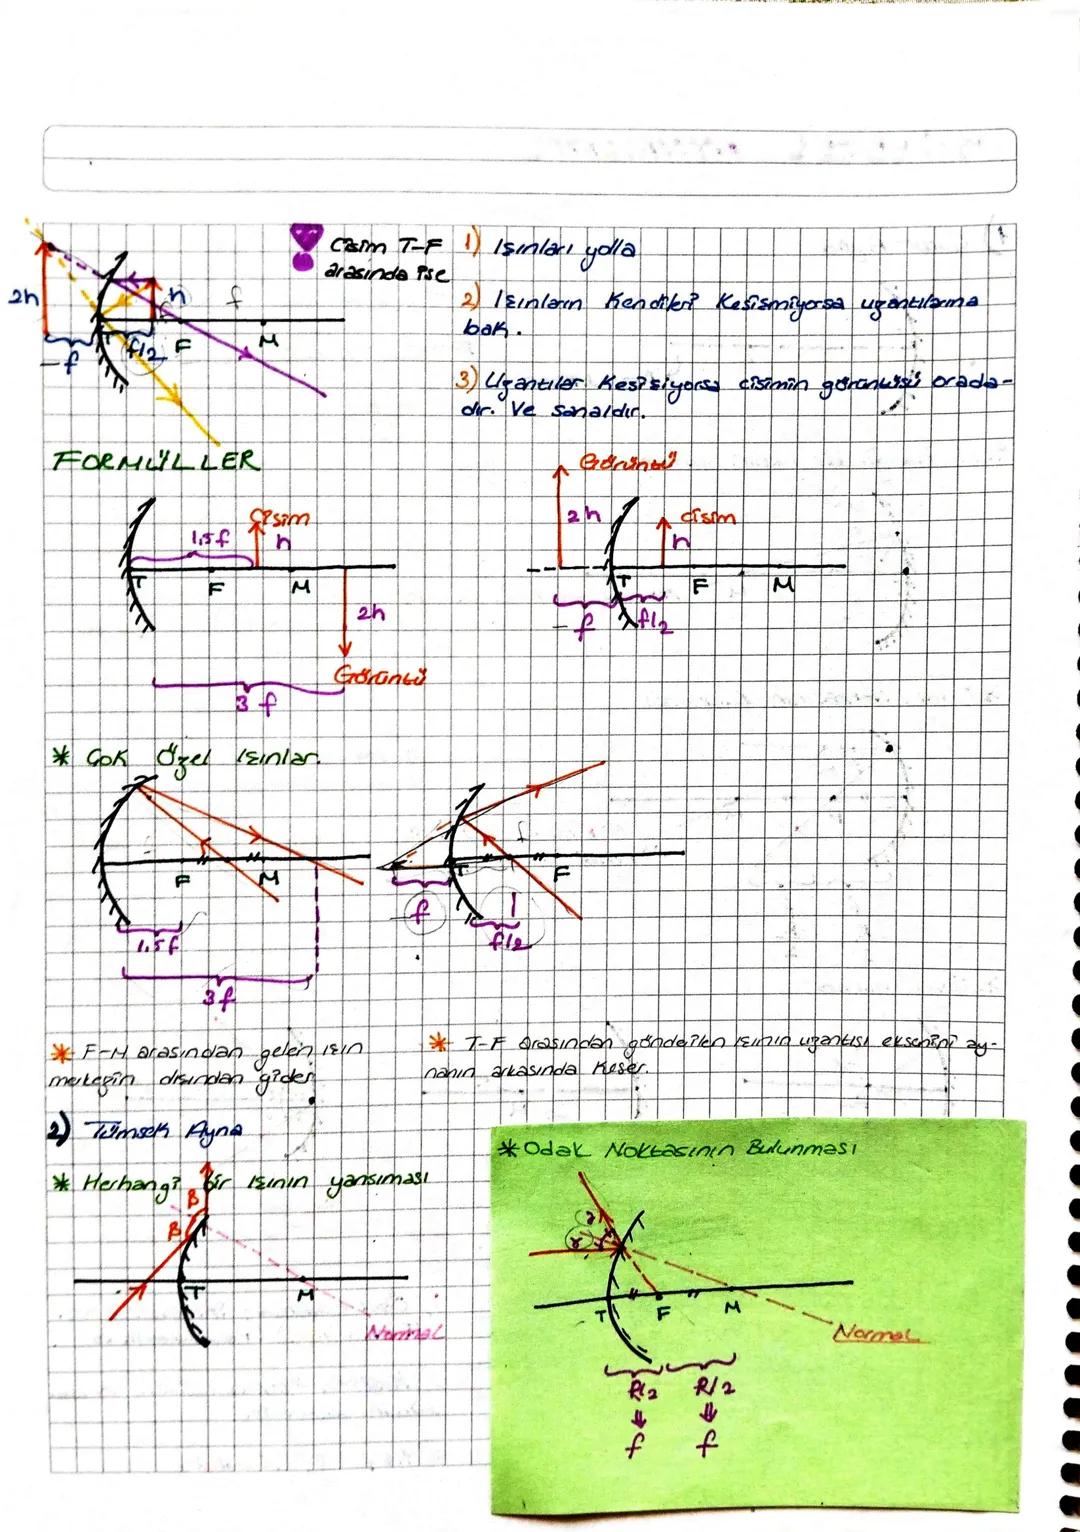 Cisim T-F
arasında ise
1) Işınları yolla
2) Işınların Kendileri Kesismiyorsa uzantılarına
bak.
3) Uzantılar Kesişiyorsa cisimin görüntüsü orada-
dır. Ve sanaldır.
2h
h
f
T
F
M
-f
f/2
FORMÜLLER
Cisim
1,5f
h
T
F
M
2h
Görüntü
3f
Görüntü
2h
cisim
h
T
F
M
-f
f/2
* Çok Özel Işınlar.
F
M
1,5f
3f
f
T
F
-f
f/2
* F-M arasından gelen ışın
merkezin dışından gider
* T-F arasından gönderilen ışının uzantısı eksenini ay-
nanın arkasında keser.
2) Tümsek Ayna
* Herhangi bir ışının yansıması
B
B
T
M
Normal
* Odak Noktasının Bulunması
T
F
M
Normal
R/2 R/2
f f